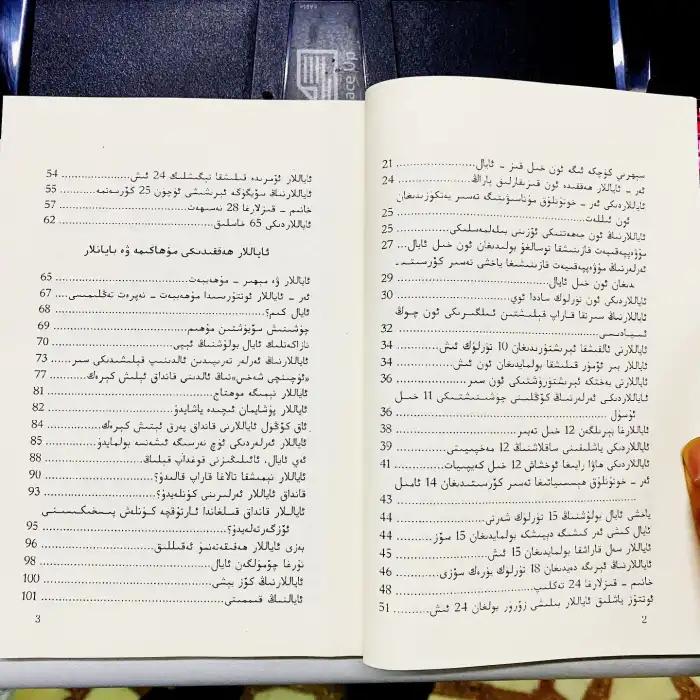 سېھرىي كۈچكە ئىگە ئون خىل قىز - ئايال....................21
ئەر - ئاياللار ھەققىدە ئون قىزىقارلىق پاراڭ............24
ئاياللاردىكى ئەر - خوتۇنلۇق مۇناسىۋىتىگە تەسىر يەتكۈزىدىغان
ئون ئىللەت....................25
ئاياللارنىڭ ئون جەھەتتىكى ئۆزىنى بىلەلمەسلىكى............25
مۇۋەپپەقىيەت قازىنىشقا توسالغۇ بولىدىغان ئون خىل ئايال....27
ئەرلەرنىڭ مۇۋەپپەقىيەت قازىنىشىغا ياخشى تەسىر كۆرسىتىـ
دىغان ئون خىل ئايال....................29
ئاياللاردىكى ئون تۈرلۈك ساددا ئوي....................30
ئاياللارنىڭ سىرتقا قاراپ قىلىشتىن ئىلگىرىكى ئون چوڭ
ئىپادىسى....................32
ئاياللارنى ئالقىشقا ئېرىشتۈرىدىغان 10 تۈرلۈك ئىش............34
ئاياللار بىر ئۆمۈر قىلىشقا بولمايدىغان ئون ئىش............34
ئاياللارنى بەختكە ئېرىشتۈرۈشتىكى ئون سىر............36
ئاياللاردىكى ئەرلەرنىڭ كۆڭلىنى چۈشىنىشتىكى 11 خىل
ئۇسۇل....................36
ئاياللارغا بېرىلگەن 12 خىل تەبىر....................38
ئاياللاردىكى ياشلىقىنى ساقلاشنىڭ 12 مەخپىيىتى............39
ئاياللاردىكى ھاۋا رايىغا ئوخشاش 12 خىل كەيپىيات............41
ئەر - خوتۇنلۇق ھېسسىياتىغا تەسىر كۆرسىتىدىغان 14 ئامىل
....................43
ياخشى ئايال بولۇشنىڭ 15 تۈرلۈك شەرتى....................44
ئايال كىشى ئەر كىشىگە دېيىشكە بولمايدىغان 15 سۆز............44
ئاياللار سەل قاراشقا بولمايدىغان 15 ئىش............45
ئاياللارنىڭ ئېرىگە دەيدىغان 18 تۈرلۈك يۈرەك سۆزى............46
خانىم - قىزلارغا 24 تەكلىپ....................48
ئوتتۇز ياشلىق ئاياللار بىلىشى زۆرۈر بولغان 24 ئىش............51
2
ئاياللار ئۆمرىدە قىلىشقا تېگىشلىك 24 ئىش....................54
ئاياللارنىڭ سۆيگۈگە ئېرىشىشى ئۈچۈن 25 كۆرسەتمە............55
خانىم - قىزلارغا 28 نەسىھەت....................57
ئاياللاردىكى 65 خاسلىق....................62
ئاياللار ھەققىدىكى مۇھاكىمە ۋە بايانلار
ئاياللار ۋە مېھىر - مۇھەببەت....................65
ئەر - ئاياللار ئوتتۇرىسىدا مۇھەببەت - نەپرەت تەڭلىمىسى....67
ئايال كىم؟....................68
چۈشىنىش سۆيۈشتىن مۇھىم....................69
نازاكەتلىك ئايال بولۇشنىڭ ئېپى....................70
ئاياللارنىڭ ئەرلەر تەرىپىدىن ئالدىنىپ قېلىشىدىكى سىر....73
«ئۈچىنچى شەخس»نىڭ ئالدىنى قانداق ئېلىش كېرەك............77
ئاياللار نېمىگە موھتاج....................81
ئاياللار پۇشايمان ئىچىدە ياشايدۇ....................82
ئاق كۆڭۈل ئاياللارنى قانداق پەرق ئېتىش كېرەك............84
ئاياللار ئەرلەردىكى ئۈچ نەرسىگە ئىشەنسە بولمايدۇ............85
ئەي ئايال، ئائىلىڭىزنى قوغداپ قېلىڭ....................88
ئاياللار نېمىشقا تالاغا قاراپ قالىدۇ؟....................90
قانداق ئاياللار ئەرلىرىنى كۈنلەيدۇ؟....................93
ئاياللار قانداق قىلغاندا ئارتۇقچە كۈنلەش پىسخىكىسىنى
ئۆزگەرتەلەيدۇ؟....................95
بەزى ئاياللار ھەقىقەتەنمۇ ئەقىللىق....................96
نۇرغا چۆمۈلگەن ئايال....................98
ئاياللارنىڭ كۆز يېشى....................100
ئايالنىڭ قىممىتى....................101
3